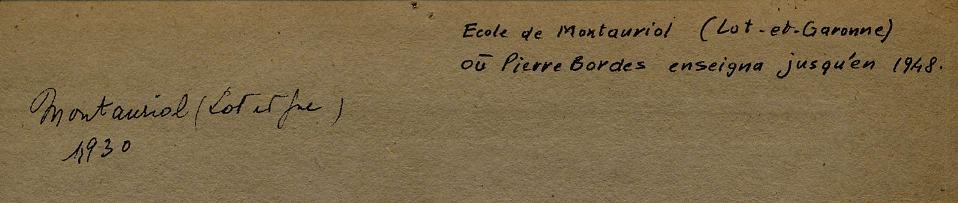 Ecole de Montauriol (Lot-et-Garonne)
où Pierre Bordes enseigna jusqu'en 1948.
Montauriol (Lot et Gne)
1930